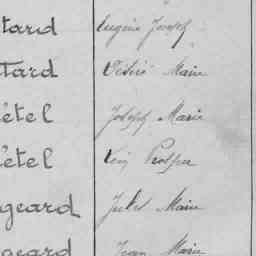 tard Eugène Joseph
tard Désiré Marie
étel Joseph Marie
étel Prosper
geard Jules Marie
geard Jean Marie